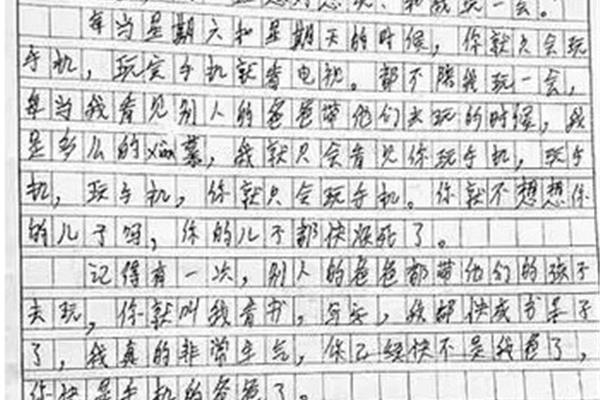 和我玩一会。
每当星期六和星期天的时候,你就只会玩
手机,玩完手机就看电视。都不陪我玩一会,
每当我看见别人的爸爸带他们去玩的时候,我
是多么的xiàn慕,我就只会看见你玩手机,玩手
机,玩手机,你就只会玩手机。你就不想想你
的儿子吗,你的儿子都快烦死了。
记得有一次,别人的爸爸都带他们的孩子
去玩,你就叫我看书,写字,我都快成书呆子
了,我真的非常生气,你已经快不是我爸了,
你快是手机的爸爸了。